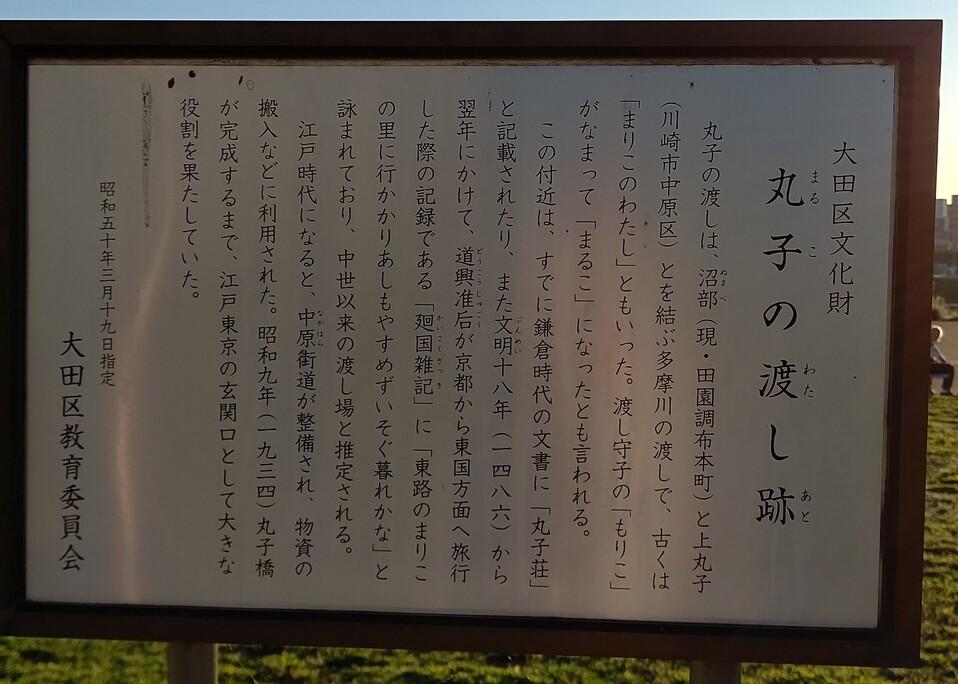 大田区文化財
丸子の渡し跡
丸子の渡しは、沼部（現・田園調布本町）と上丸子
（川崎市中原区）とを結ぶ多摩川の渡しで、古くは
「まりこのわたし」ともいった。渡し守子の「もりこ」
がなまって「まるこ」になったとも言われる。
この付近は、すでに鎌倉時代の文書に「丸子荘」
と記載されたり、また文明十八年（一四八六）から
翌年にかけて、道興准后が京都から東国方面へ旅行
した際の記録である「廻国雑記」に「東路のまりこ
の里に行かかりあしもやすめずいそぐ暮れかな」と
詠まれており、中世以来の渡し場と推定される。
江戸時代になると、中原街道が整備され、物資の
搬入などに利用された。昭和九年（一九三四）丸子橋
が完成するまで、江戸東京の玄関口として大きな
役割を果たしていた。
昭和五十年三月十九日指定
大田区教育委員会